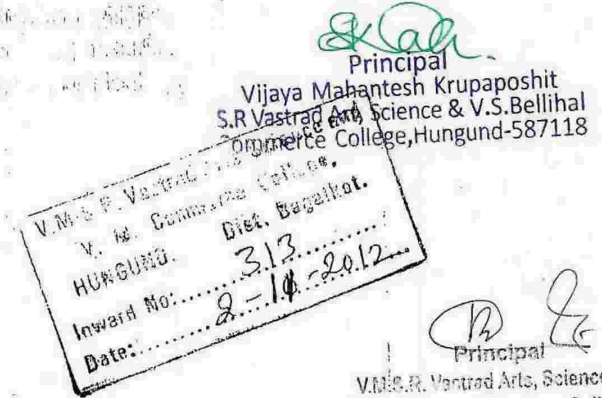 Principal
Vijaya Mahantesh Krupaposhit
S.R Vastrad Art, Science & V.S.Bellihal
Commerce College,Hungund-587118
V.M.S.R. Vastrad Arts, Science and
V. S. Commerce College,
HUNGUND. Dist. Bagalkot.
Inward No:......313......
Date:......2-11-2012...
Principal
V.M.S.R. Vastrad Arts, Science